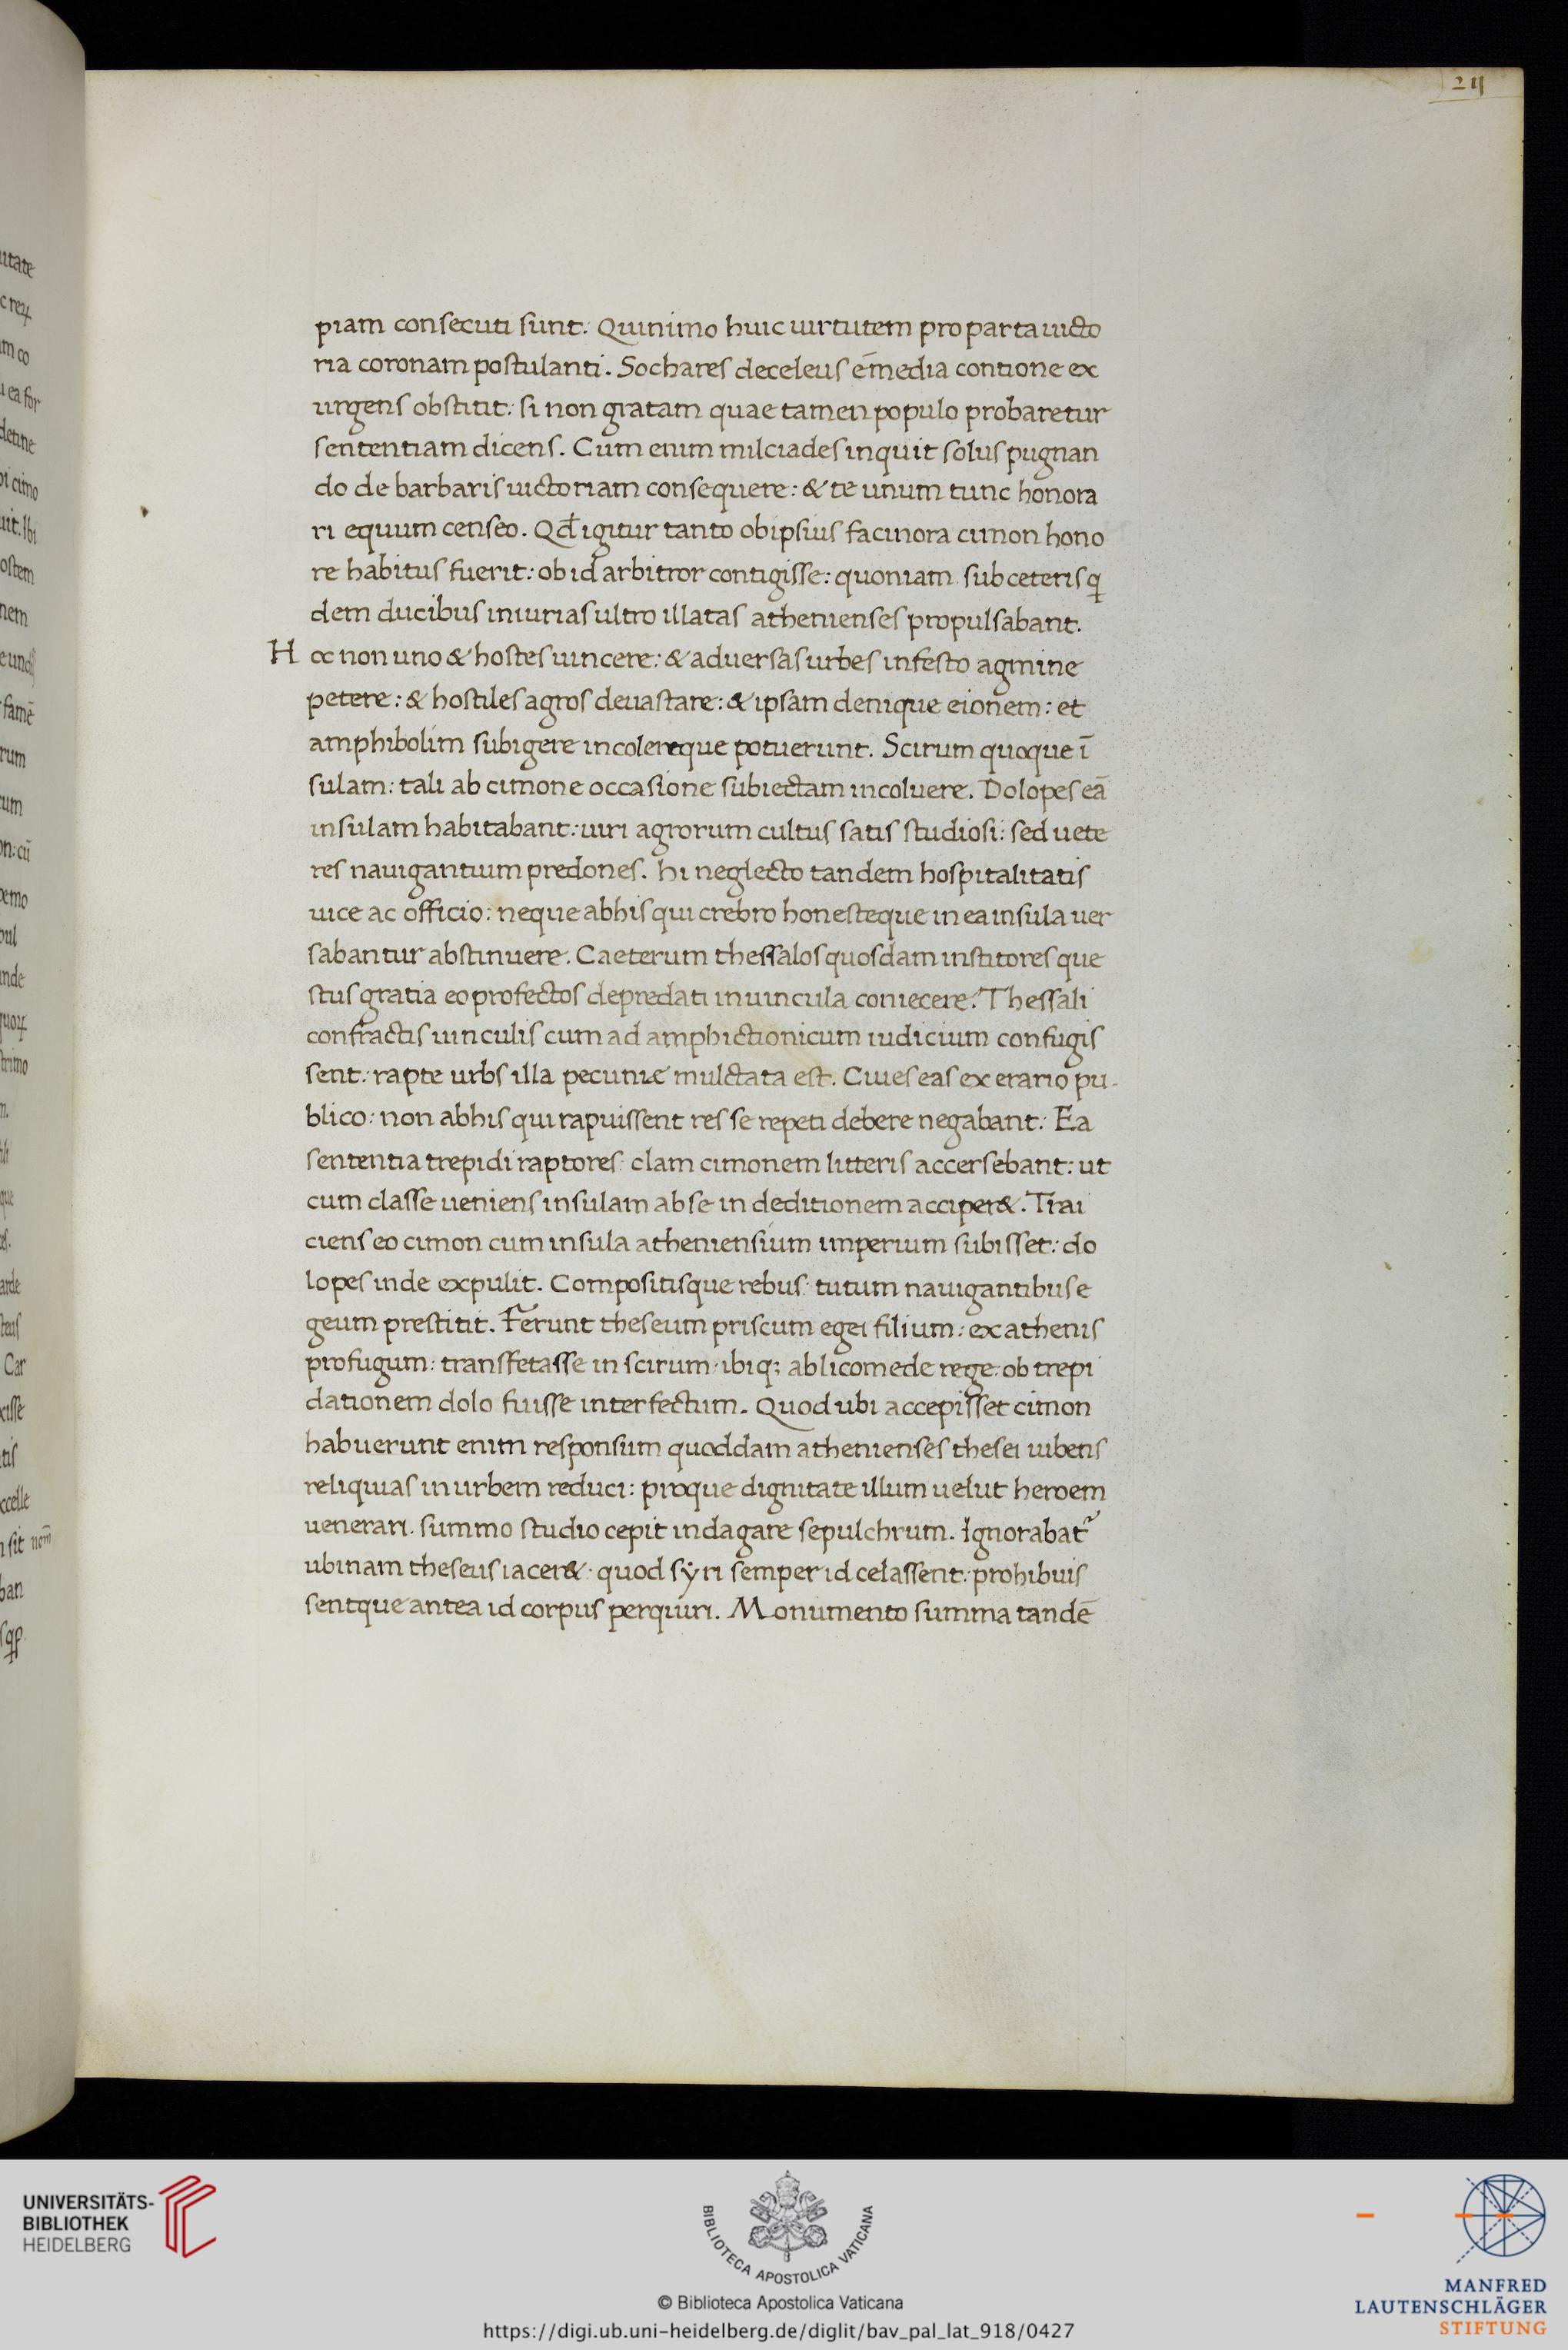 211
piam consecuti sunt: Quinimo huic uirtutem pro parta uicto
ria coronam postulanti. Sochares deceleus e media contione ex
urgens obstitit: si non gratam quae tamen populo probaretur
sententiam dicens. Cum enim milciades inquit solus pugnan
do de barbaris uictoriam consequere: & te unum tunc honora
ri equum censeo. Qd̄ igitur tanto ob ipsius facinora cimon hono
re habitus fuerit: ob id arbitror contigisse: quoniam sub ceteris q
dem ducibus iniurias ultro illatas athenienses propulsabant.
Hoc non uno & hostes uincere: & aduersas urbes infesto agmine
petere: & hostiles agros deuastare: & ipsam denique eionem: et
amphibolim subigere incolereque potuerunt. Scirum quoque ī
sulam: tali ab cimone occasione subiectam incoluere. Dolopes eā
insulam habitabant: uiri agrorum cultus satis studiosi: sed uete
res nauigantium predones. hi neglecto tandem hospitalitatis
uice ac officio: neque ab his qui crebro honesteque in ea insula uer
sabantur abstinuere. Caeterum thessalos quosdam institores que
stus gratia eo profectos depredati in uincula coniecere: Thessali
confractis uinculis cum ad amphictionicum iudicium confugis
sent: rapte urbs illa pecunie mulctata est. Ciues eas ex erario pu-
blico: non ab his qui rapuissent res se repeti debere negabant: Ea
sententia trepidi raptores: clam cimonem litteris accersebant: ut
cum classe ueniens insulam ab se in deditionem acciper&. Trai
ciens eo cimon cum insula atheniensium imperium subisset: do
lopes inde expulit. Compositisque rebus: tutum nauigantibus e
geum prestitit. Ferunt theseum priscum egei filium: ex athenis
profugum: transfretasse in scirum: ibiq; ab licomede rege: ob trepi
dationem dolo fuisse interfectum. Quod ubi accepisset cimon
habuerunt enim responsum quoddam athenienses thesei iubens
reliquias in urbem reduci: proque dignitate illum uelut heroem
uenerari. summo studio cepit indagare sepulchrum. Ignorabat᷑
ubinam theseus iacer&: quod syri semper id celassent: prohibuis
sentque antea id corpus perquiri. Monumento summa tandē
UNIVERSITÄTS-
BIBLIOTHEK
HEIDELBERG
BIBLIOTECA APOSTOLICA VATICANA
© Biblioteca Apostolica Vaticana
https://digi.ub.uni-heidelberg.de/diglit/bav_pal_lat_918/0427
MANFRED
LAUTENSCHLÄGER
STIFTUNG